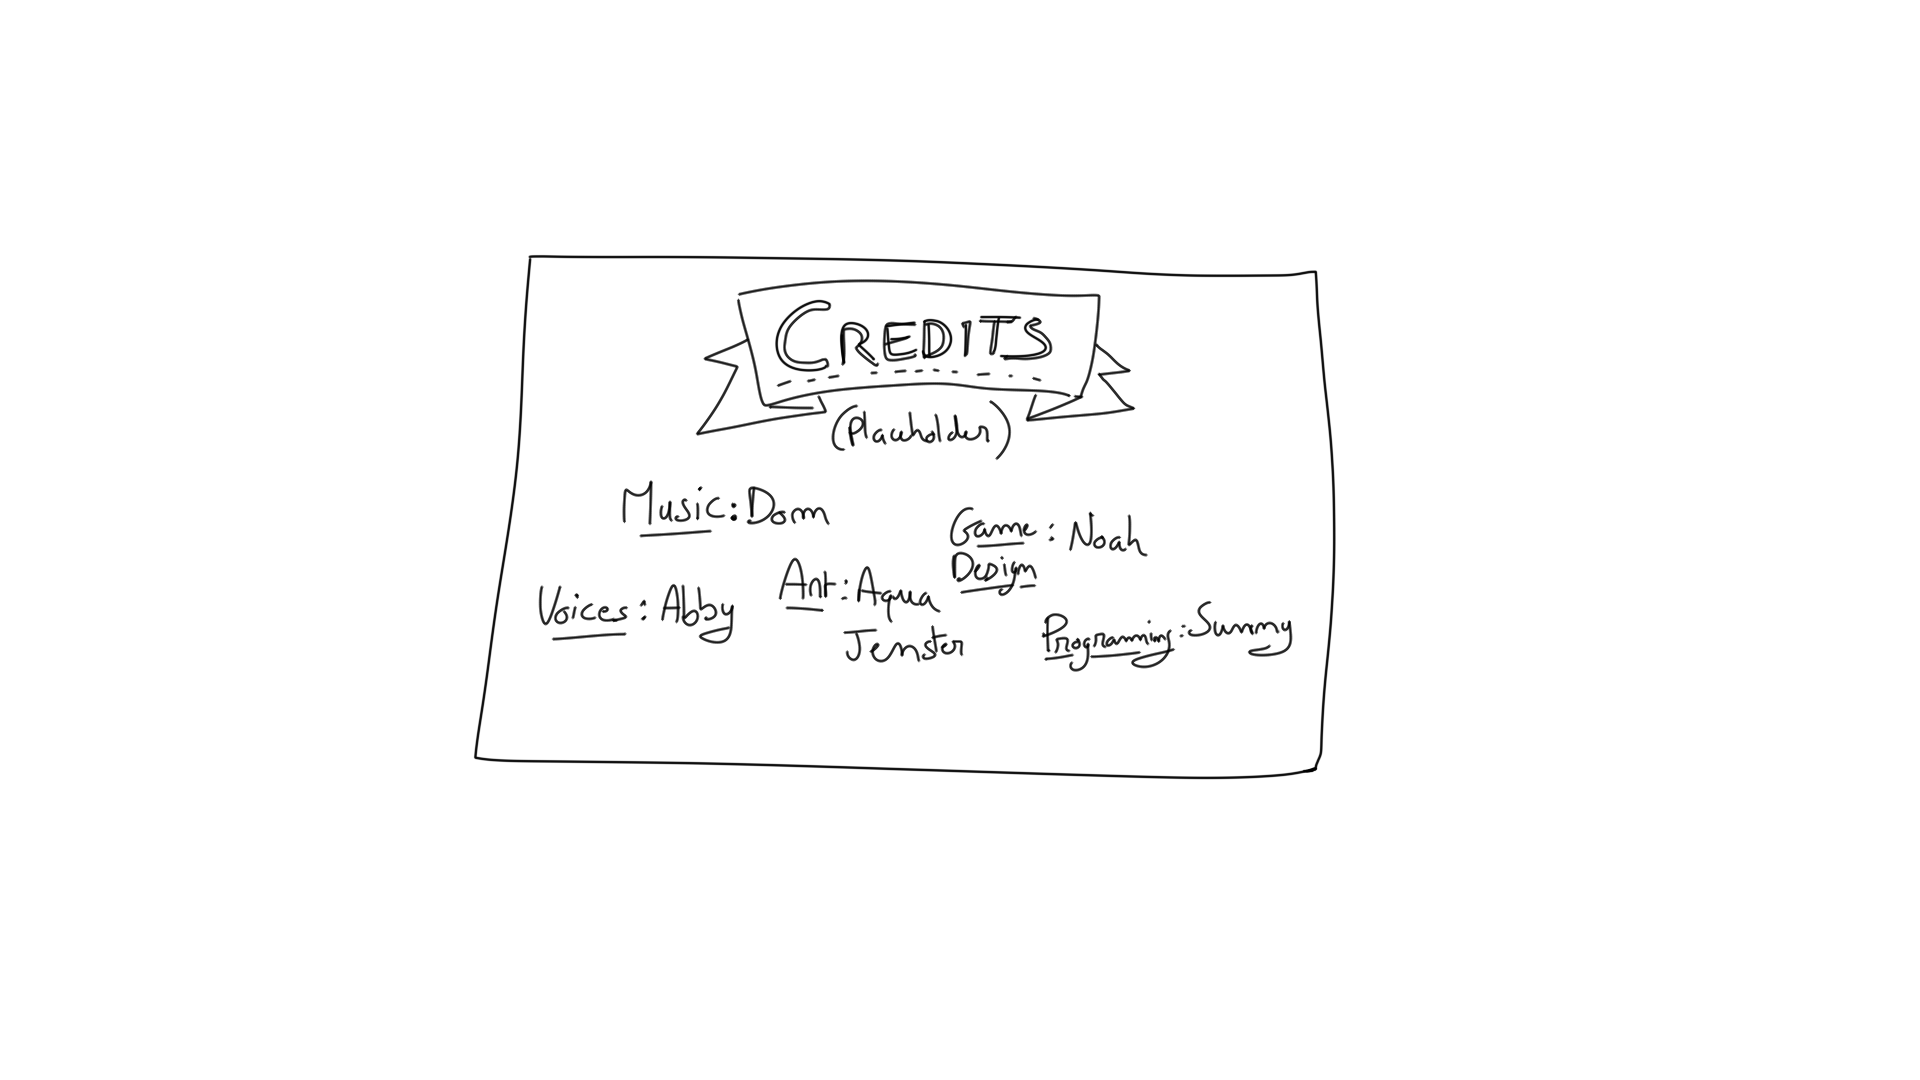 CREDITS
(Placeholder)
Music: Dom
Game: Noah
Design
Voices: Abby
Art: Aqua
Jenster
Programming: Sunny